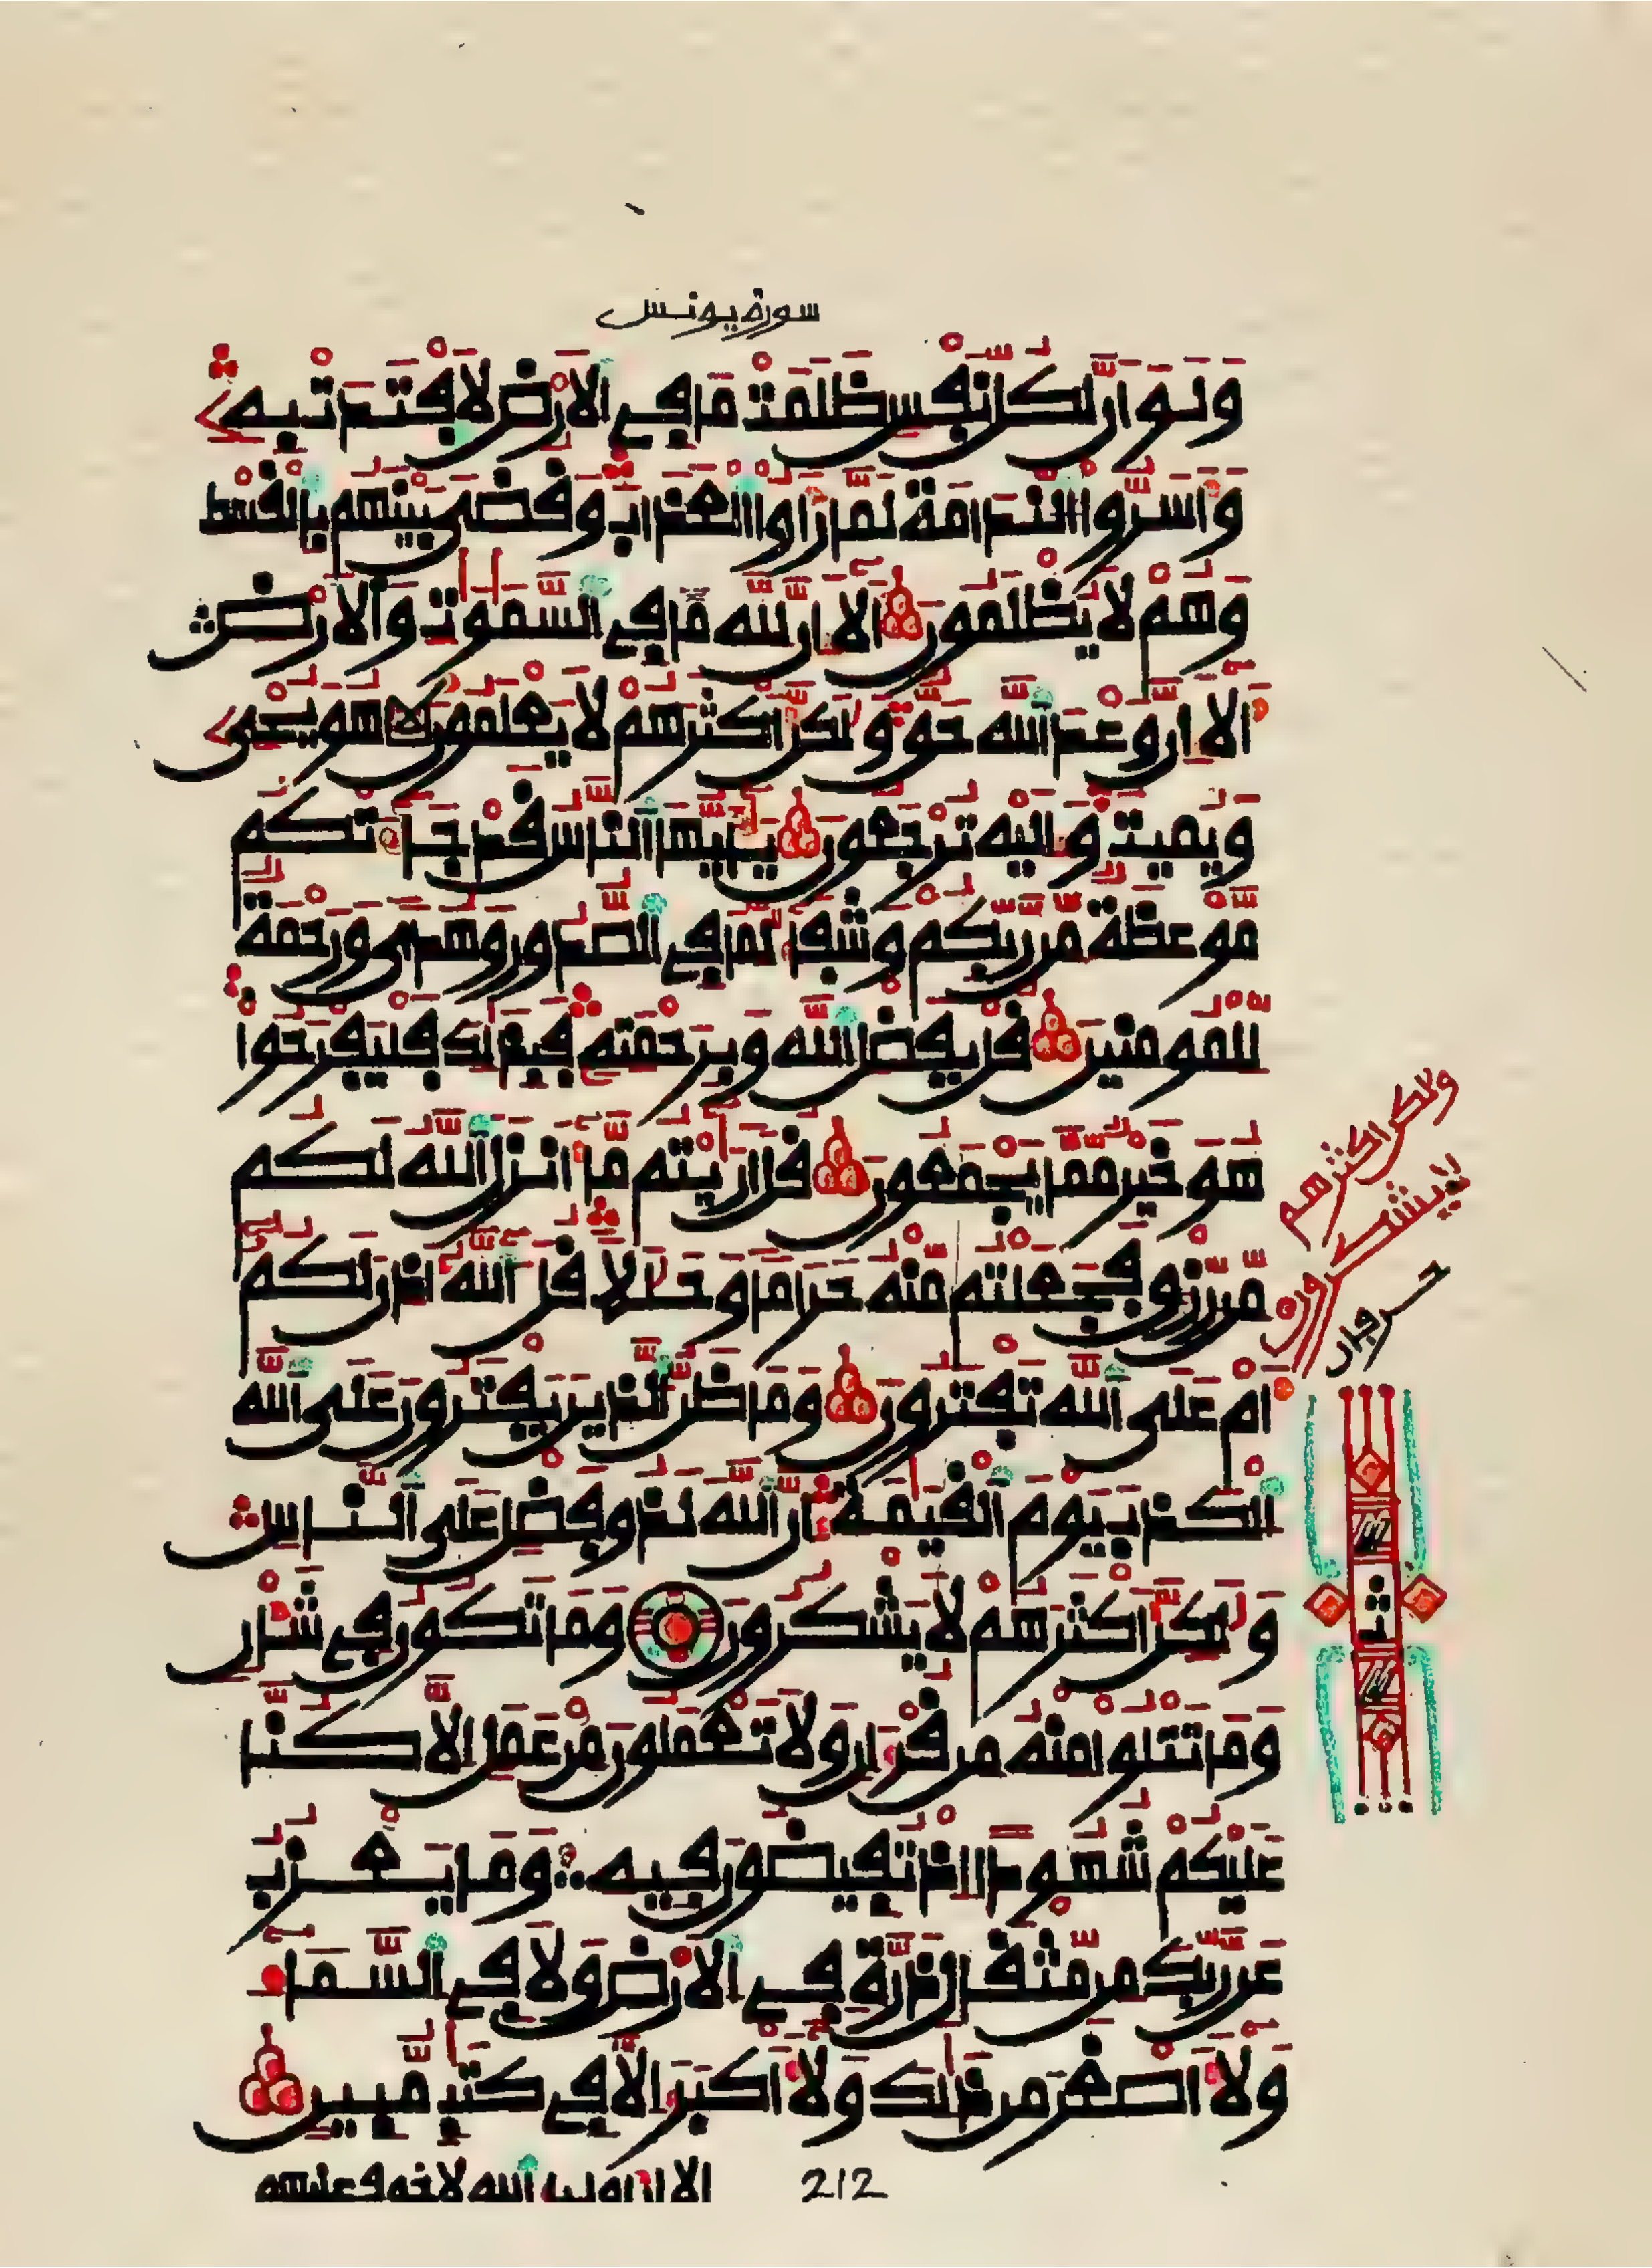 سورة يونس
وَلَوَ اَنَّ لِكُلِّ نَفْسٍ ظَلَمَتْ مَا فِي اِلَارْضِ لَافْتَدَتْ بِهِ
وَأَسَرُّوا اُلنَّدَامَةَ لَمَّا رَأَوُا اُلْعَذَابَ وَقُضِيَ بَيْنَهُم بِالْقِسْطِ
وَهُمْ لَا يُظْلَمُونَ أَلَا إِنَّ لِلهِ مَا فِي اِلسَّمٰوٰتِ وَالَارْضِ
أَلَا إِنَّ وَعْدَ اَللَّهِ حَقٌّ وَلَٰكِنَّ أَكْثَرَهُمْ لَا يَعْلَمُونَ هُوَ يُحْيِ
وَيُمِيتُ وَإِلَيْهِ تُرْجَعُونَ يَٰأَيُّهَا اَلنَّاسُ قَدْ جَاءَتْكُم
مَّوْعِظَةٌ مِّن رَّبِّكُمْ وَشِفَاءٌ لِّمَا فِي اِلصُّدُورِ وَهُدًى وَرَحْمَةٌ
لِّلْمُومِنِينَ قُلْ بِفَضْلِ اِللَّهِ وَبِرَحْمَتِهِ فَبِذَٰلِكَ فَلْيَفْرَحُوا
هُوَ خَيْرٌ مِّمَّا يَجْمَعُونَ قُلَ اَرَٰيْتُم مَّا أَنزَلَ اَللَّهُ لَكُم
مِّن رِّزْقٍ فَجَعَلْتُم مِّنْهُ حَرَامًا وَحَلَٰلًا قُلَ آللَّهُ أَذِنَ لَكُمُ
أَمْ عَلَى اَللَّهِ تَفْتَرُونَ وَمَا ظَنُّ اُلذِينَ يَفْتَرُونَ عَلَى اَللَّهِ
اِلْكَذِبَ يَوْمَ اَلْقِيَٰمَةِ إِنَّ اَللَّهَ لَذُو فَضْلٍ عَلَى اَلنَّاسِ
وَلَٰكِنَّ أَكْثَرَهُمْ لَا يَشْكُرُونَ وَمَا تَكُونُ فِي شَأْنٍ
وَمَا تَتْلُوا مِنْهُ مِن قُرْءَانٍ وَلَا تَعْمَلُونَ مِنْ عَمَلٍ اِلَّا كُنَّا
عَلَيْكُمْ شُهُودًا اِذْ تُفِيضُونَ فِيهِ وَمَا يَعْزُبُ
عَن رَّبِّكَ مِن مِّثْقَالِ ذَرَّةٍ فِي اِلَارْضِ وَلَا فِي اِلسَّمَاءِ
وَلَا أَصْغَرَ مِن ذَٰلِكَ وَلَا أَكْبَرَ إِلَّا فِي كِتَٰبٍ مُّبِينٍ
ولاكن اكثرهم
لا يشكرون
ثمن
212
الا ان اولياء الله لا خوف عليهم